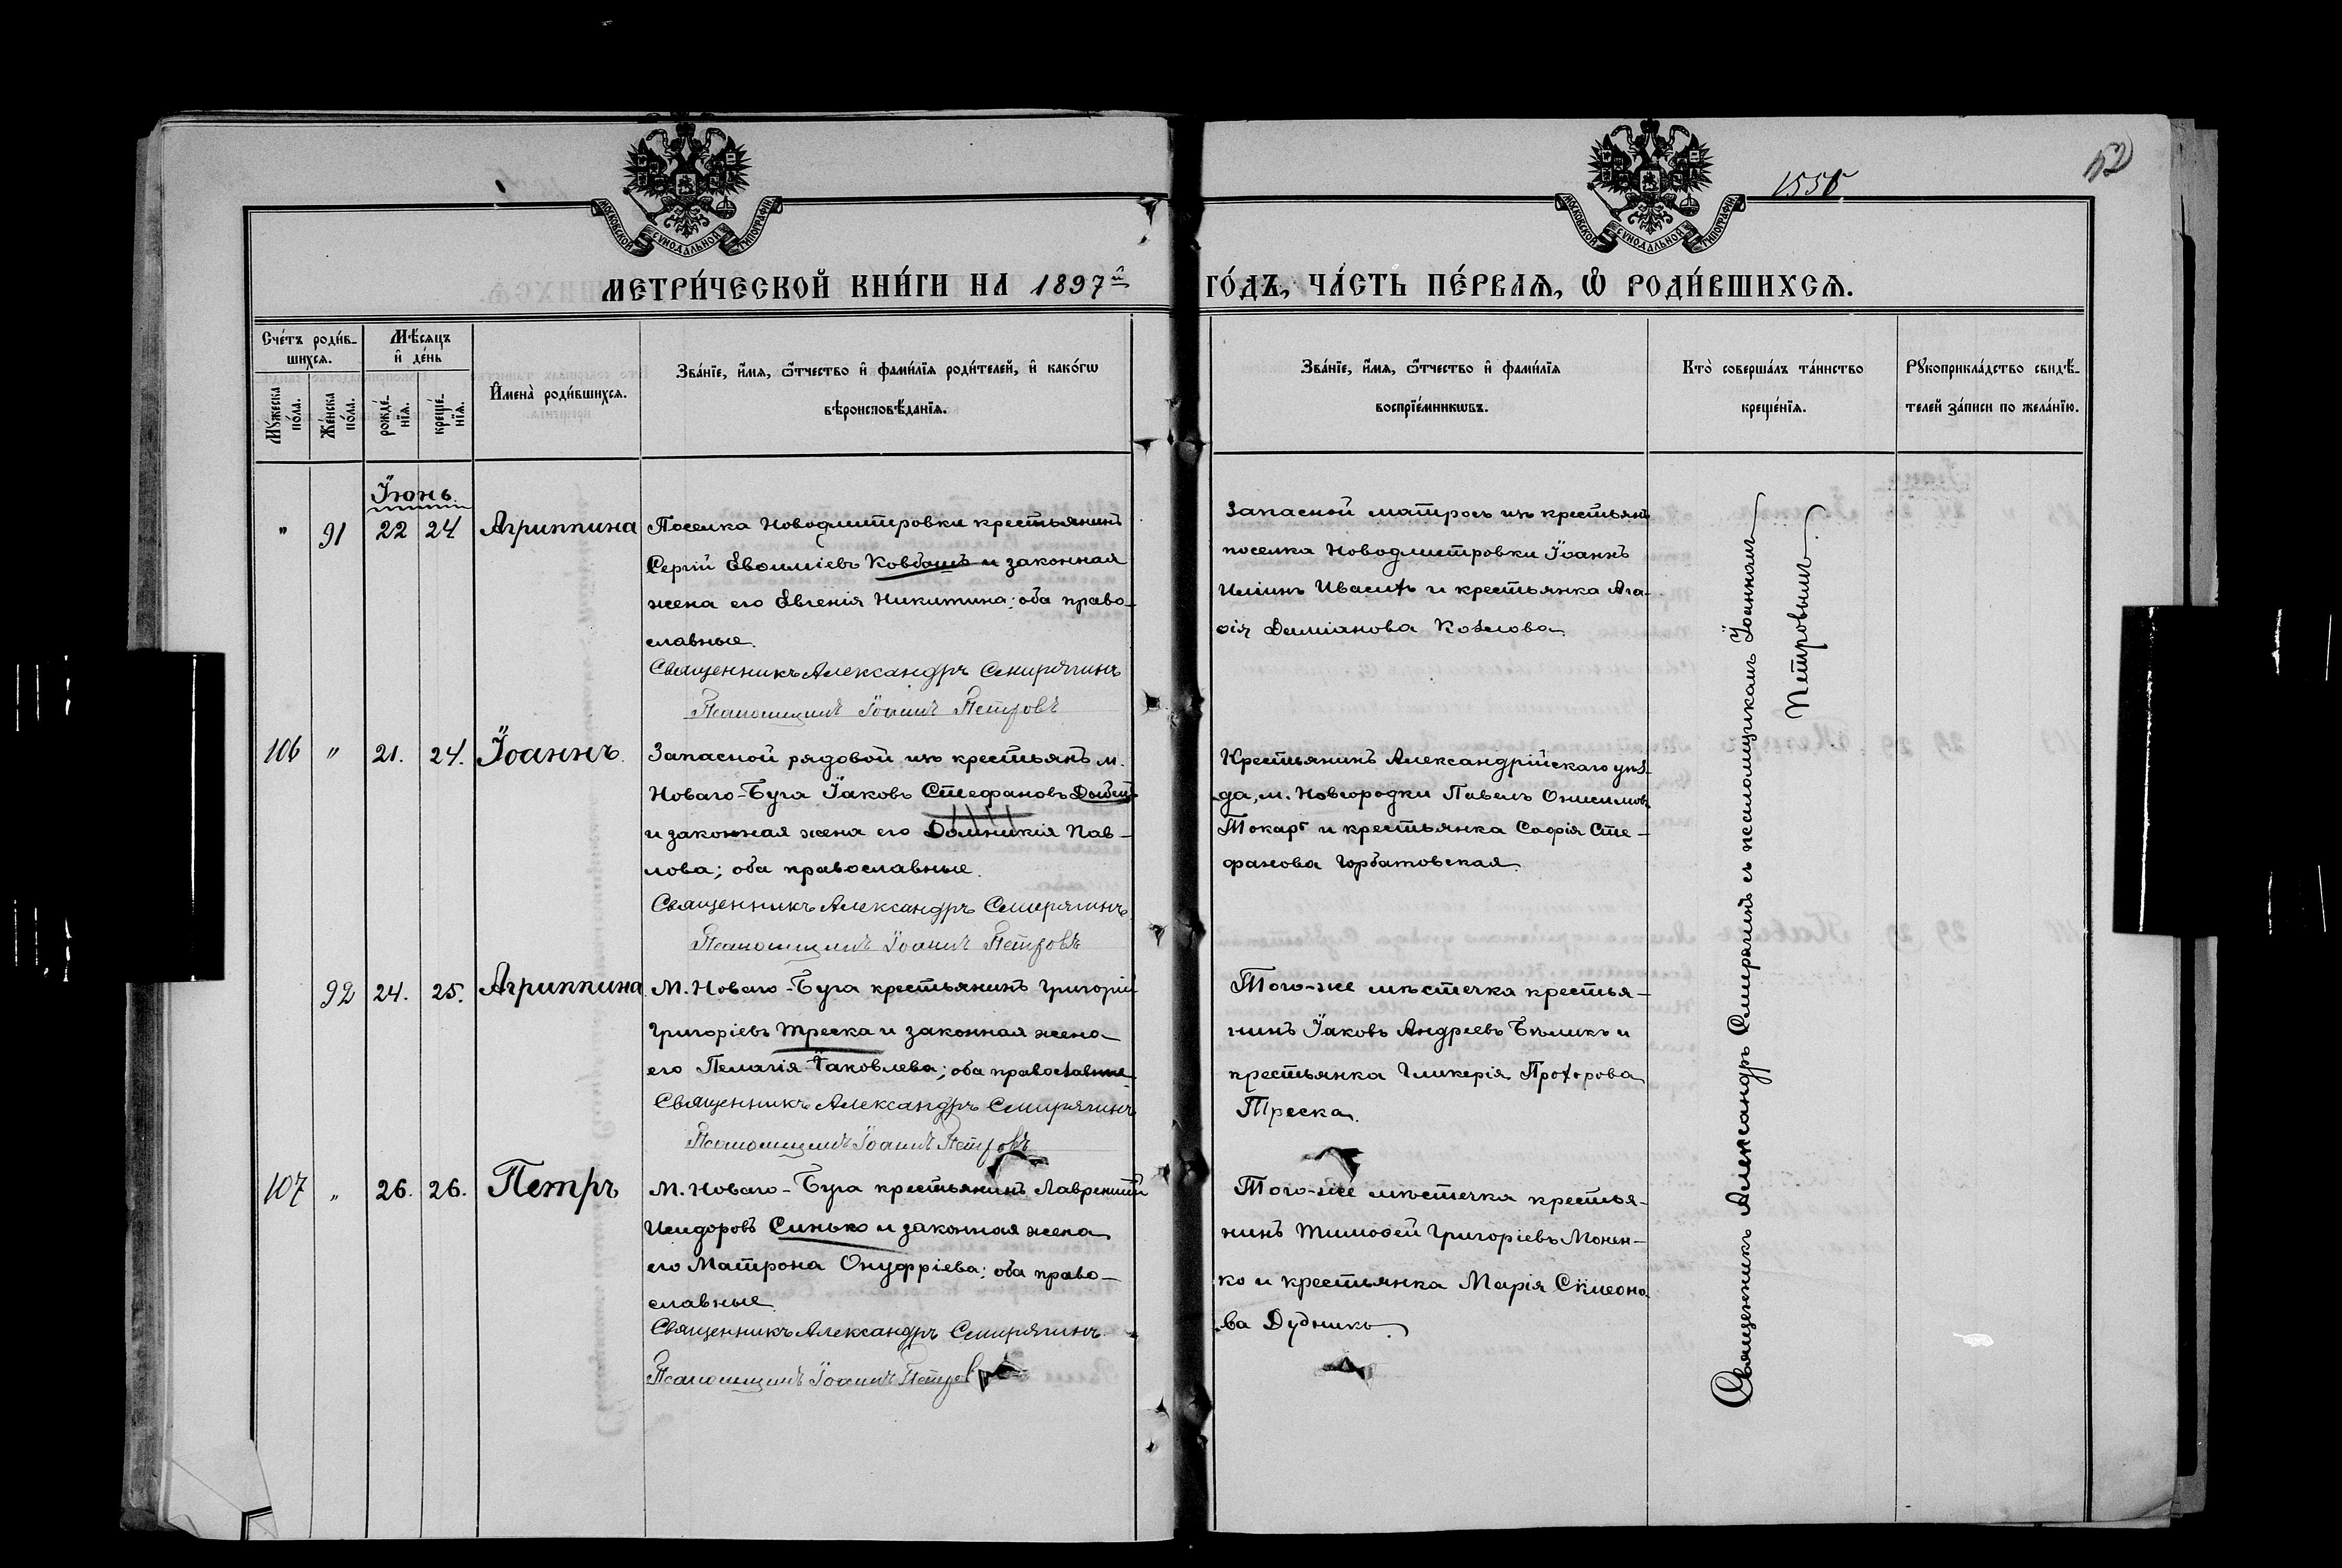 1556
52
МОСКОВСКОЙ СѴНОДАЛЬНОЙ ТИПОГРАФІИ
МОСКОВСКОЙ СѴНОДАЛЬНОЙ ТИПОГРАФІИ
МЕТРИ́ЧЕСКОЙ КНИ́ГИ НА 1897й ГО́ДЪ, ЧА́СТЬ ПЕ́РВАѦ, Ѡ РОДИ́ВШИХСѦ.
Сче́тъ роди́вшихсѧ.
Му́жеска по́ла.
Же́нска по́ла.
Мѣ́сѧцъ и де́нь
рожде́нїѧ.
креще́нїѧ.
И҆мена̀ роди́вшихсѧ.
Зва́нїе, и҆́мѧ, ѻ҆́тчество и҆ фами́лїѧ роди́телей, и҆ како́гѡ
вѣроисповѣ́данїѧ.
Зва́нїе, и҆́мѧ, ѻ҆́тчество и҆ фами́лїѧ
воспрїе́мникѡвъ.
Кто̀ соверша́лъ та́инство
креще́нїѧ.
Рꙋкоприкла́дство свидѣ́-
телей за́писи по жела́нїю.
Іюнь.
" 91 22 24 Агриппина
Поселка Новодмитровки крестьянинъ
Сергій Евѳиміевъ Ковбашъ и законная
жена его Евгенія Никитина; оба право-
славные.
Священникъ Александръ Смирягинъ
Псаломщикъ Іоаннъ Петровъ
Запасной матросъ изъ крестьянъ
поселка Новодмитровки Іоаннъ
Иліинъ и крестьянка Ага-
ѳія Даміанова Козлова.
106 " 21. 24. Іоаннъ.
Запасной рядовой изъ крестьянъ м.
Новаго-Буга Іаковъ Стефановъ
и законная жена его Домникія Пав-
лова; оба православные.
Священникъ Александръ Смирягинъ
Псаломщикъ Іоаннъ Петровъ
Крестьянинъ Александрійскаго уѣз-
да, м. Новгородки Павелъ Онисимовъ
Токарь и крестьянка Софія Сте-
фанова Горбатовская.
92 24. 25. Агриппина.
М. Новаго-Буга крестьянинъ Григорій
Григоріевъ Треска и законная жена
его Пелагія Іаковлева; оба православные
Священникъ Александръ Смирягинъ
Псаломщикъ Іоаннъ Петровъ
Того-же мѣстечка крестья-
нинъ Іаковъ Андреевъ Бѣликъ и
крестьянка Гликерія Прохорова
Треска.
107 " 26. 26. Петръ
М. Новаго-Буга крестьянинъ Лаврентій
Исидоровъ Синько и законная жена
его Матрона Онуфріева; оба право-
славные.
Священникъ Александръ Смирягинъ.
Псаломщикъ Іоаннъ Петров
Того-же мѣстечка крестья-
нинъ Тимоѳей Григоріевъ Монен-
ко и крестьянка Марія Симеоно-
ва Дудникъ.
Священникъ Александръ Смирягинъ съ псаломщикомъ Іоанномъ
Петровымъ.